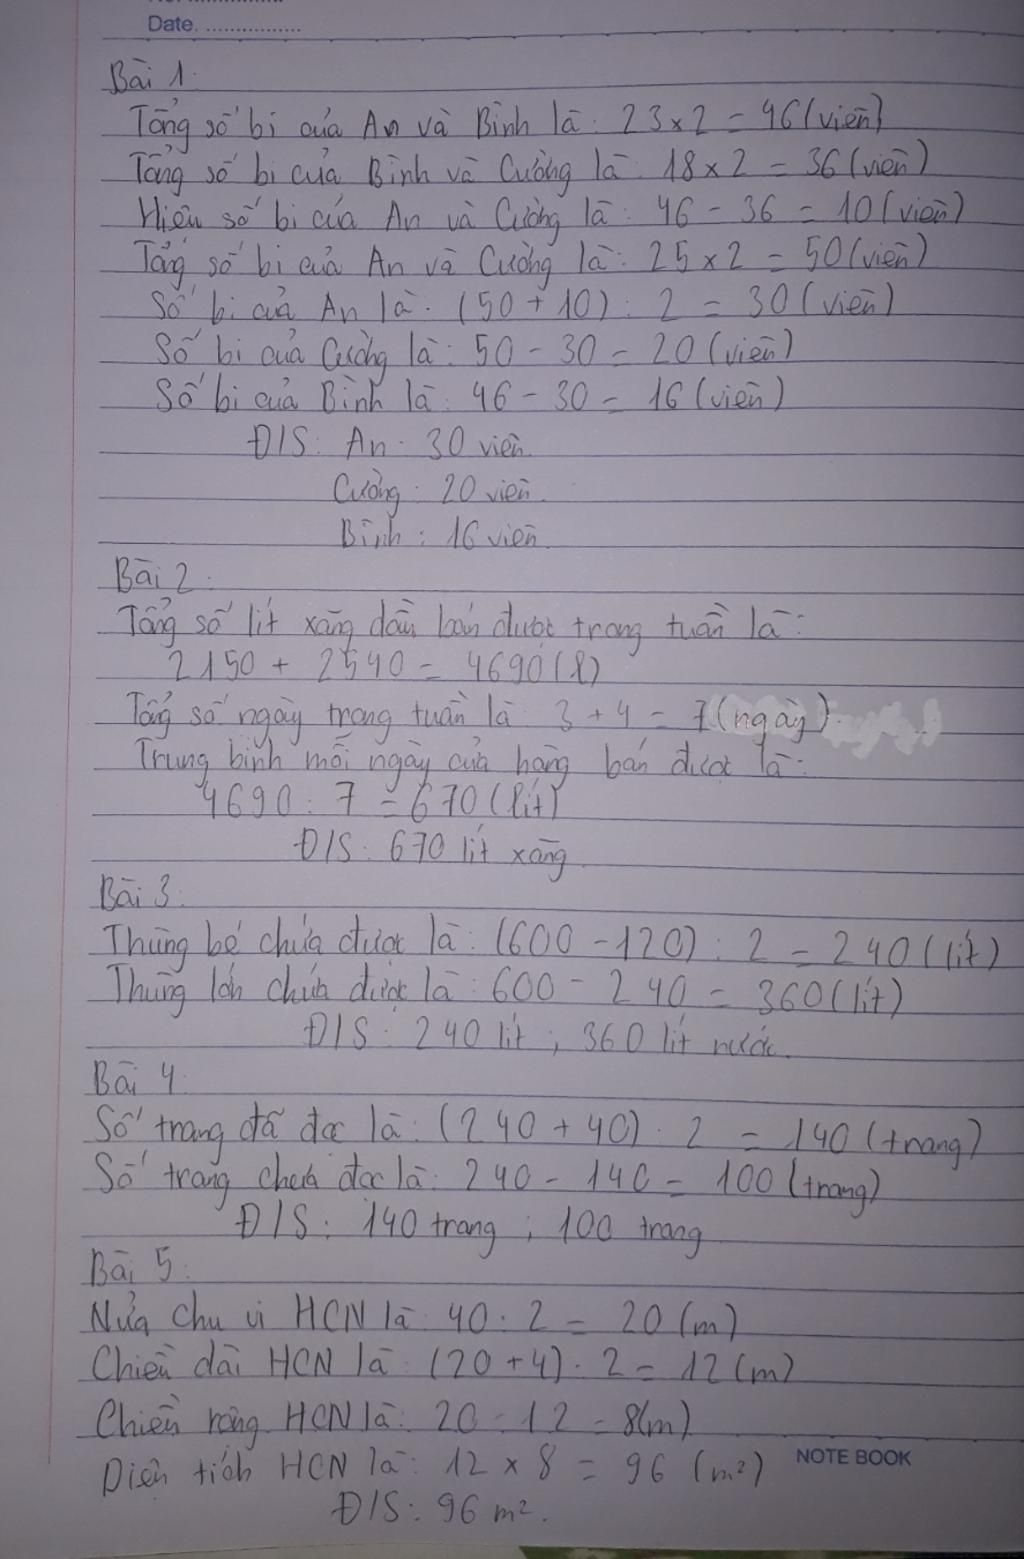 Date.
Bài 1:
Tổng số bi của An và Bình là: 23 x 2 = 46 (viên)
Tổng số bi của Bình và Cường là: 18 x 2 = 36 (viên)
Hiệu số bi của An và Cường là: 46 - 36 = 10 (viên)
Tổng số bi của An và Cường là: 25 x 2 = 50 (viên)
Số bi của An là: (50 + 10) : 2 = 30 (viên)
Số bi của Cường là: 50 - 30 = 20 (viên)
Số bi của Bình là: 46 - 30 = 16 (viên)
Đ/S: An: 30 viên.
Cường: 20 viên.
Bình: 16 viên.
Bài 2:
Tổng số lít xăng dầu bán được trong tuần là:
2150 + 2540 = 4690 (l)
Tổng số ngày trong tuần là: 3 + 4 = 7 (ngày)
Trung bình mỗi ngày cửa hàng bán được là:
4690 : 7 = 670 (lít)
Đ/S: 670 lít xăng.
Bài 3:
Thùng bé chứa được là: (600 - 120) : 2 = 240 (lít)
Thùng lớn chứa được là: 600 - 240 = 360 (lít)
Đ/S: 240 lít; 360 lít nước.
Bài 4:
Số trang đã đọc là: (240 + 40) : 2 = 140 (trang)
Số trang chưa đọc là: 240 - 140 = 100 (trang)
Đ/S: 140 trang; 100 trang
Bài 5:
Nửa chu vi HCN là: 40 : 2 = 20 (m)
Chiều dài HCN là: (20 + 4) : 2 = 12 (m)
Chiều rộng HCN là: 20 - 12 = 8 (m)
Diện tích HCN là: 12 x 8 = 96 (m²)
NOTE BOOK
Đ/S: 96 m².